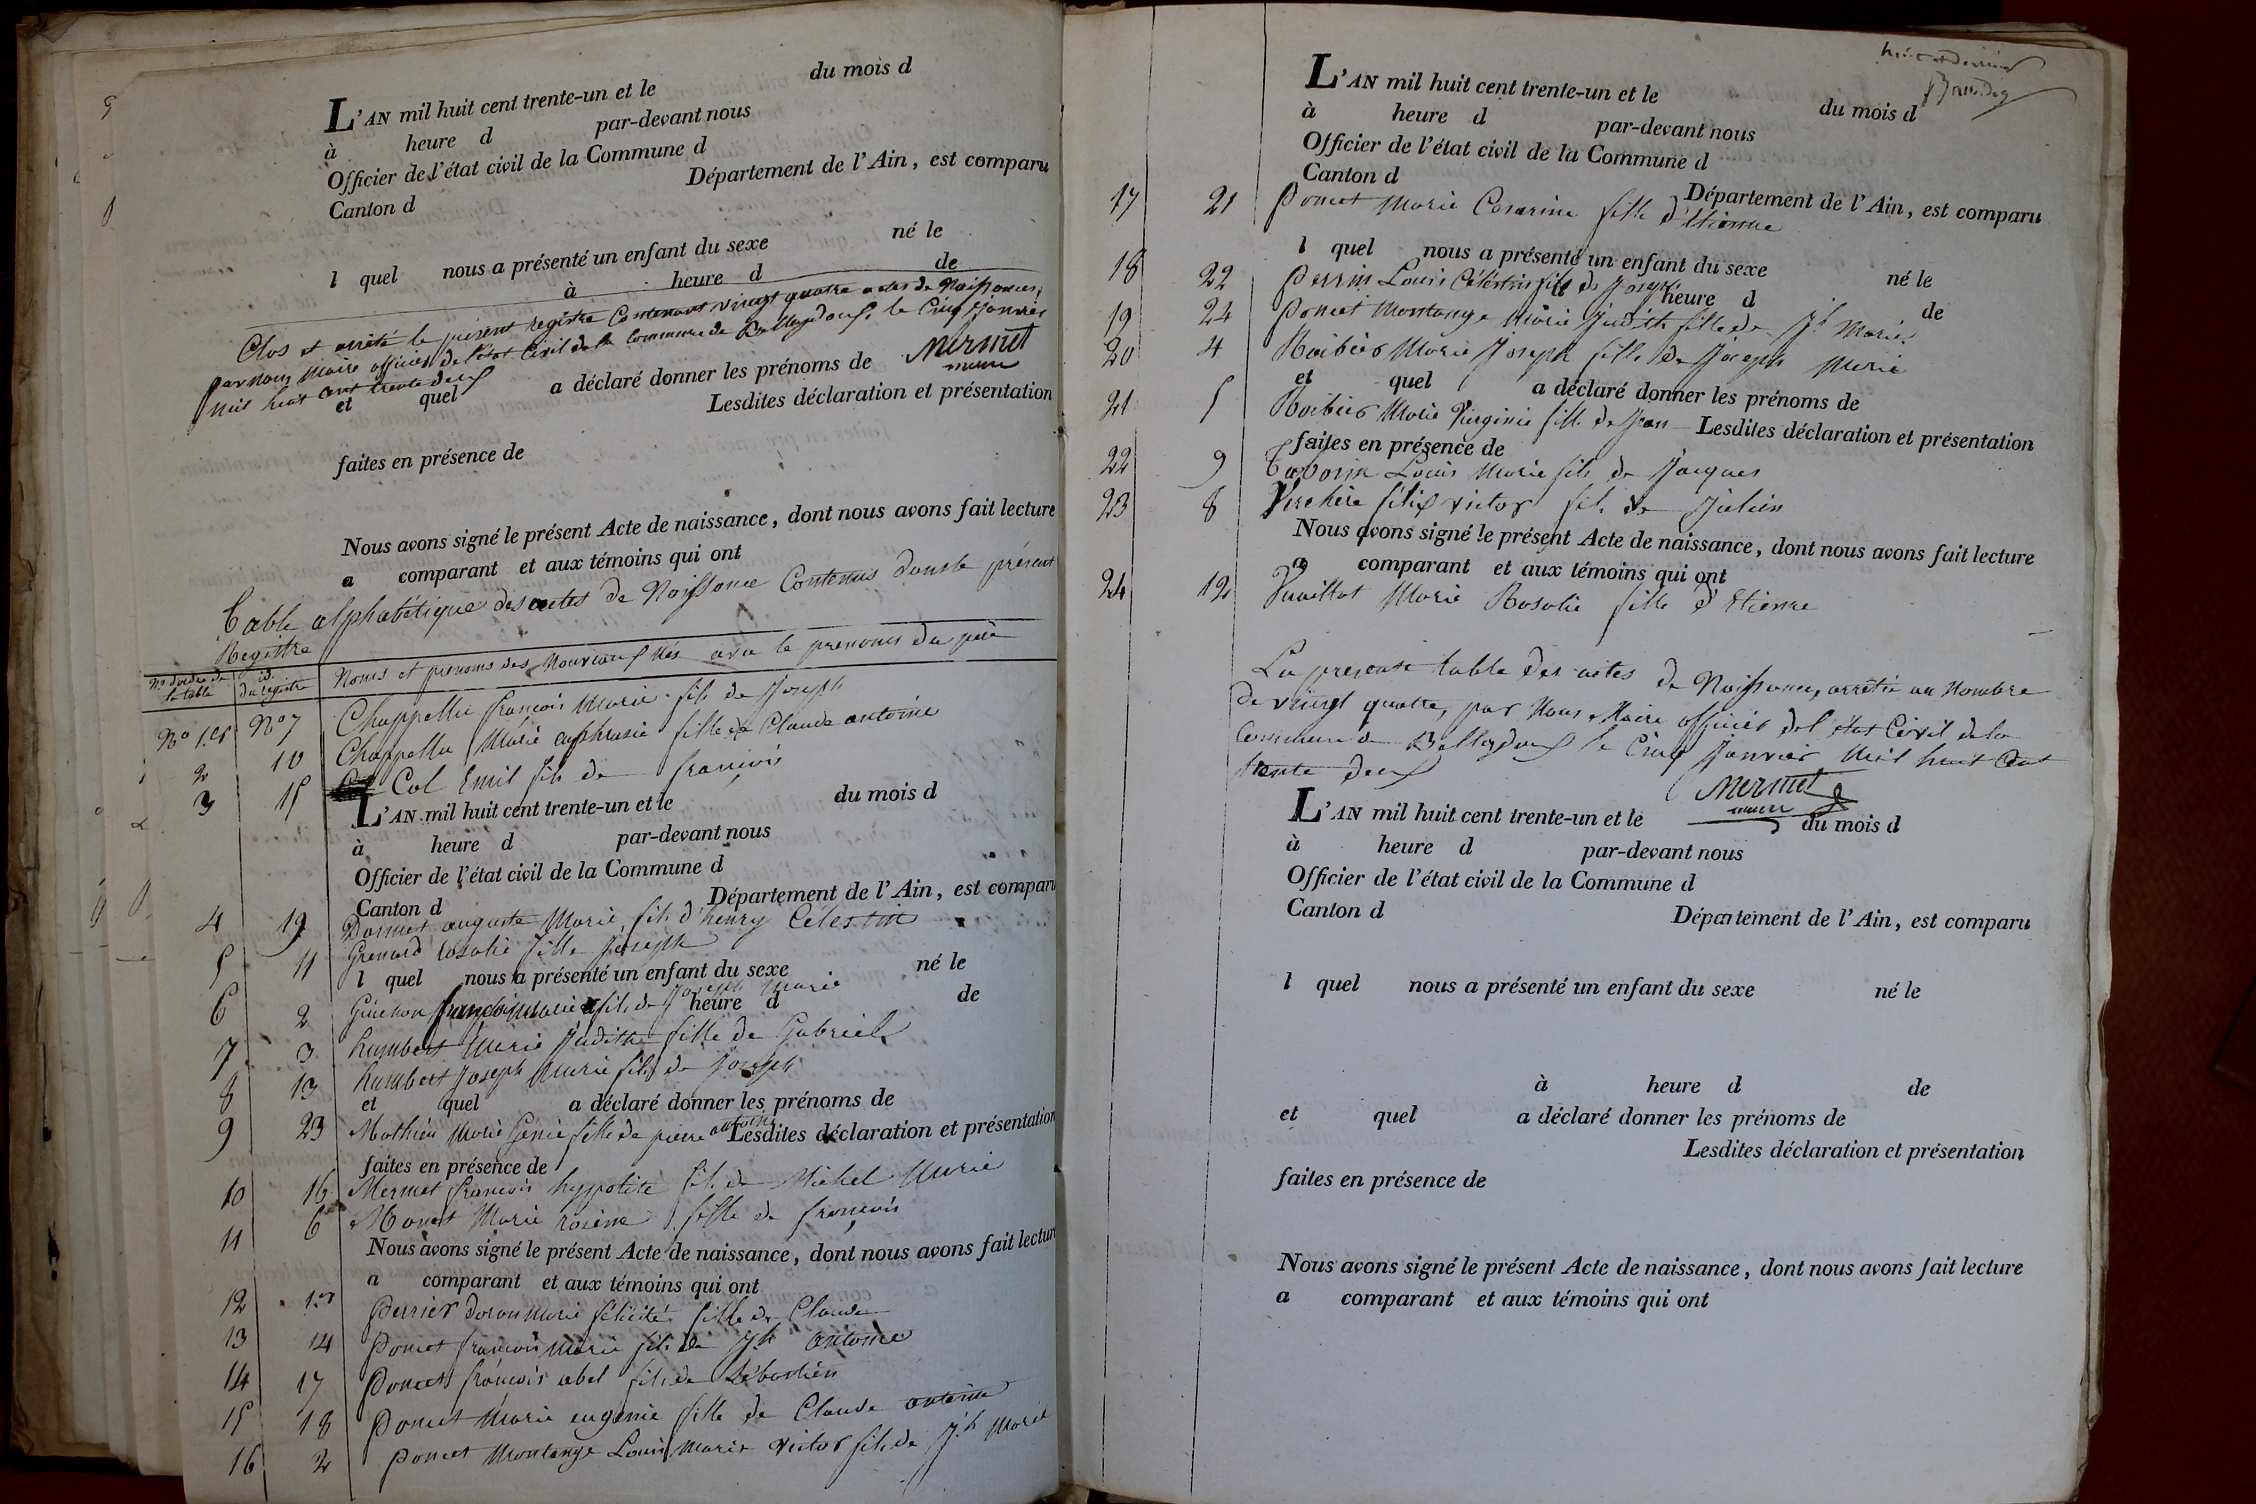 L'AN mil huit cent trente-un et le du mois d
à heure d par-devant nous
Officier de l'état civil de la Commune d
Canton d Département de l'Ain, est comparu
l quel nous a présenté un enfant du sexe né le
à heure d de
Clos et arrêté le présent registre Contenant vingt quatre actes de Naissances,
par nous Maire officier de l'état Civil de la Commune de Belleydoux le Cinq Janvier
mil huit cent trente deux Mermet
maire
et quel a déclaré donner les prénoms de
Lesdites déclaration et présentation
faites en présence de
Nous avons signé le présent Acte de naissance, dont nous avons fait lecture
a comparant et aux témoins qui ont
Table alphabétique des actes de Naissance Contenus dans le présent
Registre
No d'ordre de la table id. du registre Noms et prénoms des Nouveaux Nés avec le prenoms du père
No 1er No 7 Chappellu françois Marie fils de Joseph
2 10 Chappellu Marie euphrasie fille de Claude antoine
3 15 Col Emil fils de françois
L'AN mil huit cent trente-un et le du mois d
à heure d par-devant nous
Officier de l'état civil de la Commune d
Canton d Département de l'Ain, est comparu
4 19 Dormet auguste Marie fils d'henry Célestin
5 11 Grenard rosalie fille Joseph
l quel nous a présenté un enfant du sexe né le
6 2 Guichon Marie fils de Joseph Marie
heure d de
7 3 humbert Marie Judithe fille de Gabriel
8 13 humbert Joseph Marie fils de Joseph
et quel a déclaré donner les prénoms de
9 23 Mathieu Marie Genie fille de pierre antoine
Lesdites déclaration et présentation
faites en présence de
10 16 Mermet françois hyppolite fils de Michel Marie
11 6 Monet Marie rosine fille de françois
Nous avons signé le présent Acte de naissance, dont nous avons fait lecture
a comparant et aux témoins qui ont
12 1er Perrier Marie félicité fille de Claude
13 14 Poncet françois Marie fils de Jh antoine
14 17 Poncet françois abel fils de Sébastien
15 18 Poncet Marie eugenie fille de Claude antoine
16 2 Poncet Montange Louis Marie victor fils de Jh Marie
L'AN mil huit cent trente-un et le du mois d
à heure d par-devant nous
Officier de l'état civil de la Commune d
Canton d Département de l'Ain, est comparu
17 21 Poncet Marie Cesarine fille d'Etienne
l quel nous a présenté un enfant du sexe né le
18 22 Perrin Louis Céléstin fils de Joseph
heure d de
19 24 Poncet Montange Marie Judith fille de Jh Marie
20 4 Roibier Marie Joseph fille de Joseph Marie
et quel a déclaré donner les prénoms de
21 5 Roibier Marie Virginie fille de Jean
Lesdites déclaration et présentation
faites en présence de
22 9 Tabourin Louis Marie fils de Jacques
23 8 félix victor fils de Julien
Nous avons signé le présent Acte de naissance, dont nous avons fait lecture
a comparant et aux témoins qui ont
24 12 Vuaillat Marie Rosalie fille d'Etienne
La presente table des actes de Naissance, arrêtée au Nombre
de vingt quatre, par Nous Maire officier de l'état Civil de la
Commune de Belleydoux le Cinq Janvier Mil huit Cent
trente deux
Mermet
maire
L'AN mil huit cent trente-un et le du mois d
à heure d par-devant nous
Officier de l'état civil de la Commune d
Canton d Département de l'Ain, est comparu
l quel nous a présenté un enfant du sexe né le
à heure d de
et quel a déclaré donner les prénoms de
Lesdites déclaration et présentation
faites en présence de
Nous avons signé le présent Acte de naissance, dont nous avons fait lecture
a comparant et aux témoins qui ont